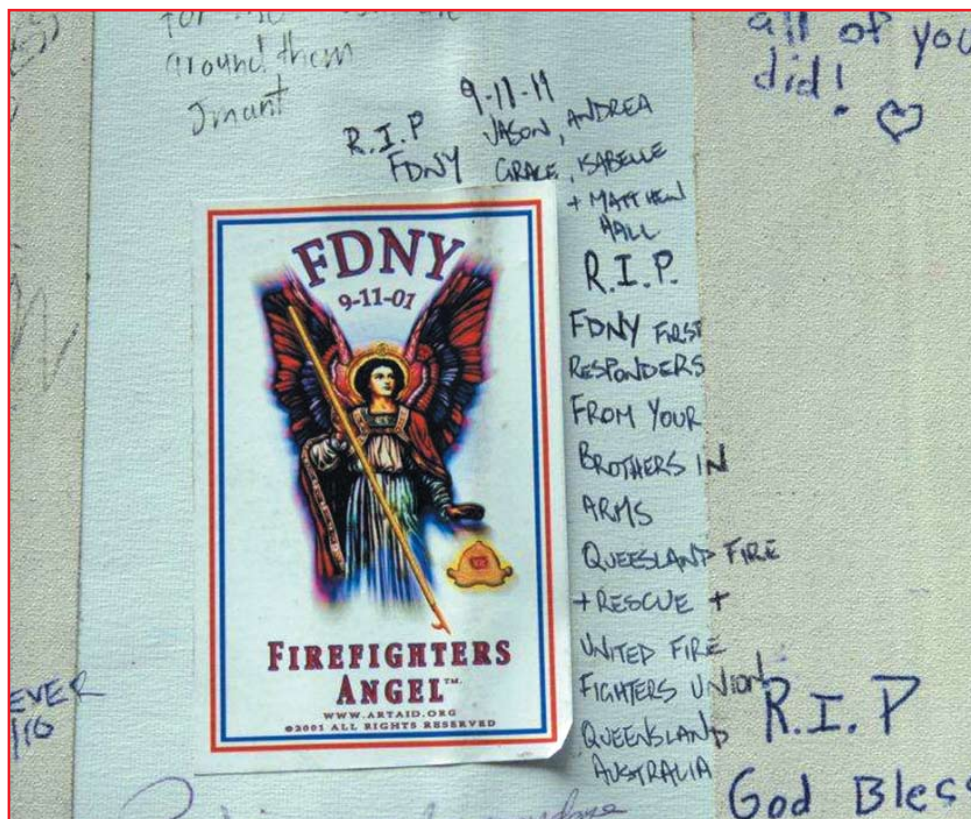 around them
Jmant
all of you
did!
9-11-11
R.I.P
FDNY
JASON, ANDREA
GRACE, ISABELLE
+ MATTHEW
HALL
R.I.P.
FDNY FIRST
RESPONDERS
FROM YOUR
BROTHERS IN
ARMS
QUEESLAND FIRE
+ RESCUE +
UNITED FIRE
FIGHTERS UNION
QUEENSLAND
AUSTRALIA
FDNY
9-11-01
FIREFIGHTERS
ANGEL™
WWW.ARTAID.ORG
©2001 ALL RIGHTS RESERVED
EVER
R.I.P
God Bless